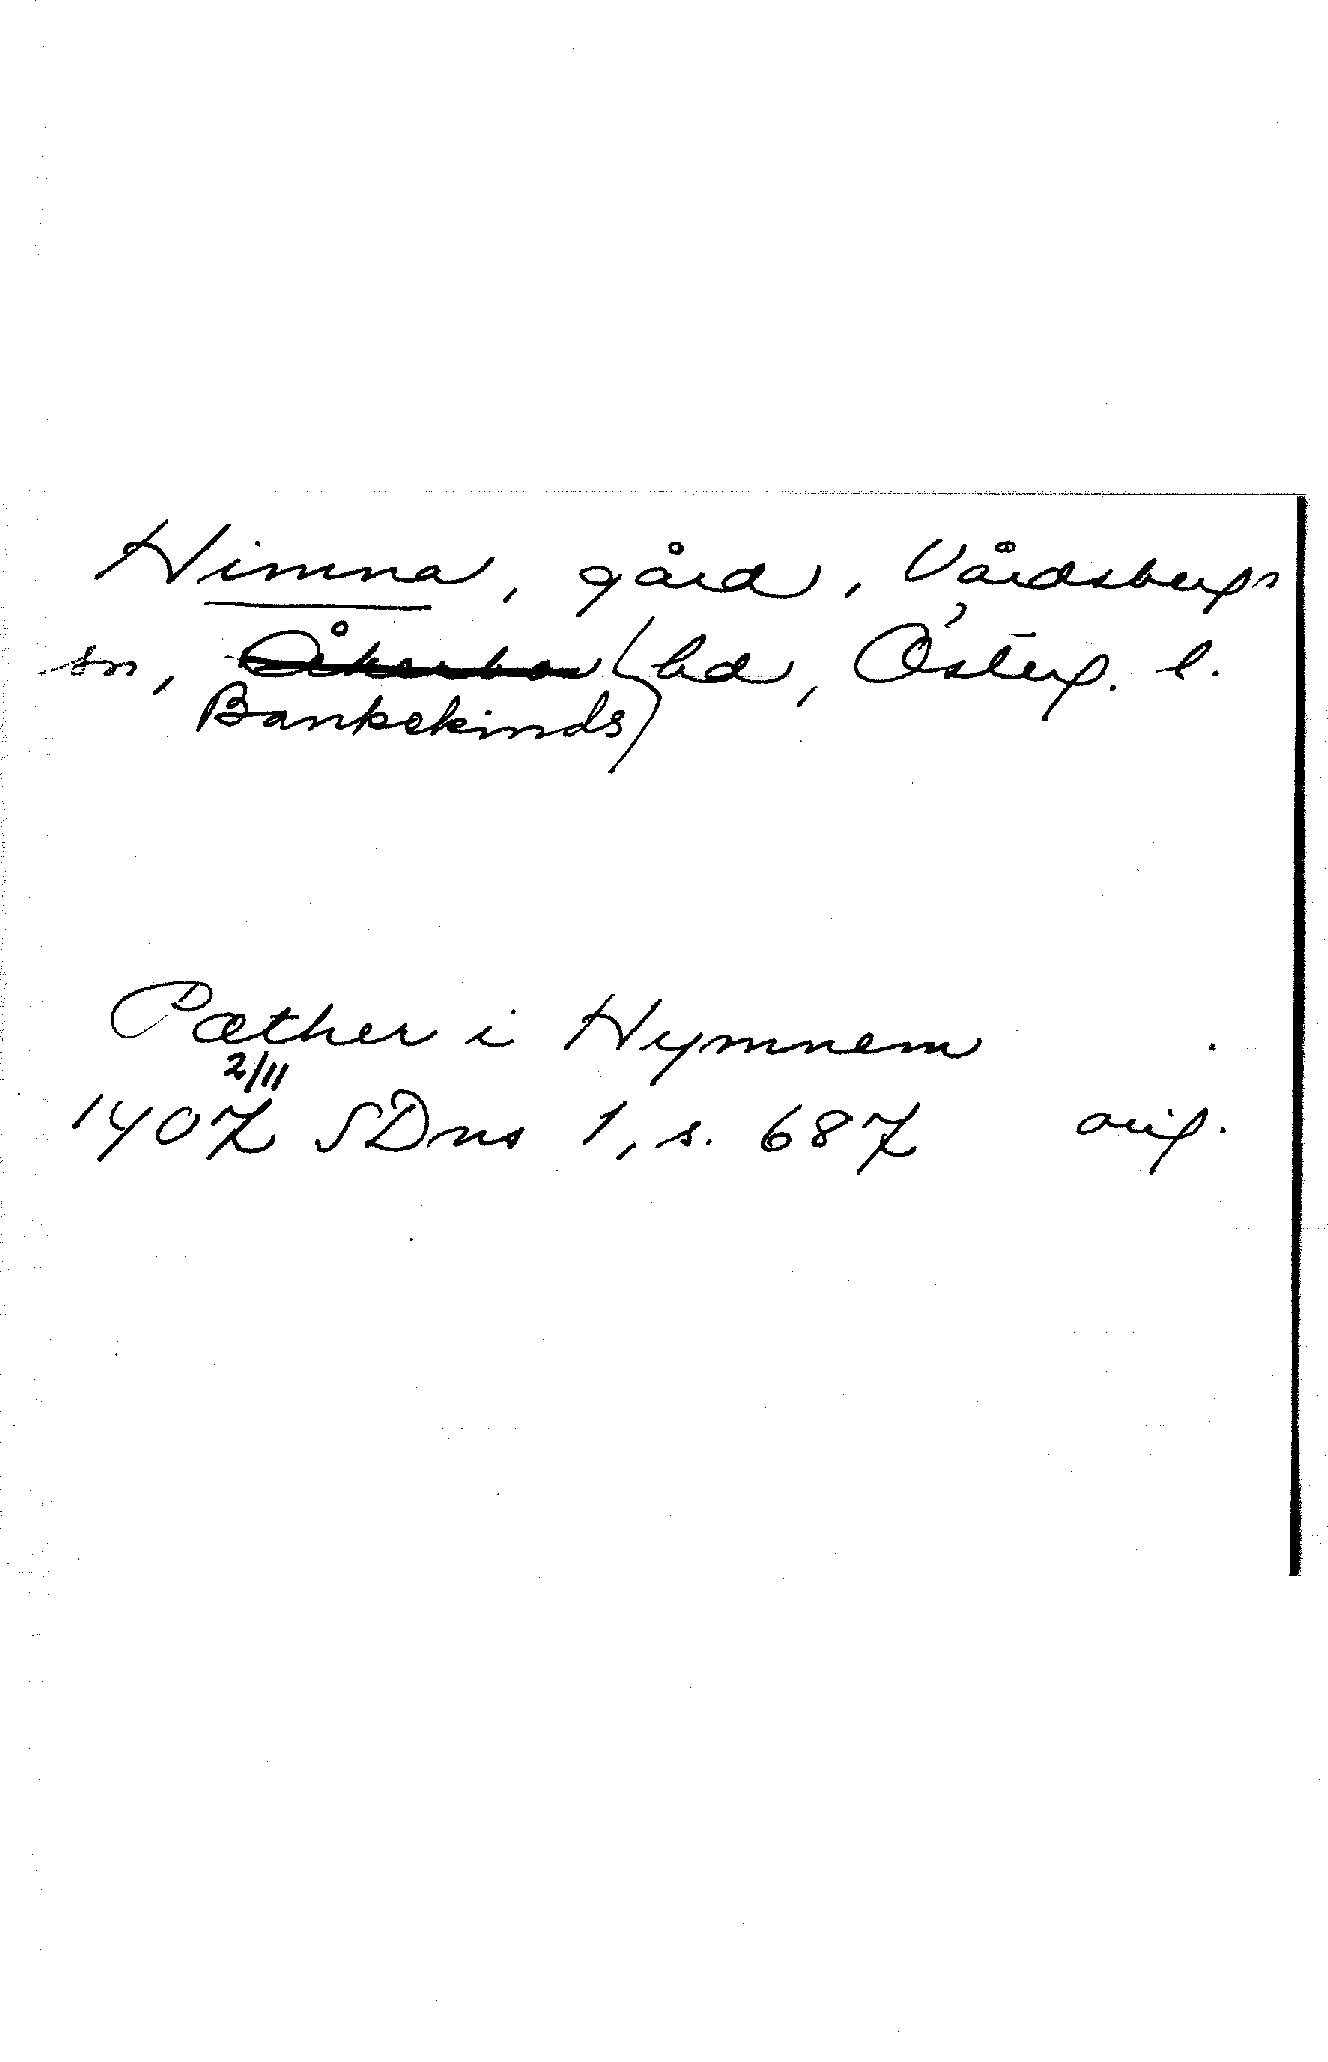 Himna, gård, Vårdsbergs
sn, Åkerbo hd, Österg. l.
Bankekinds
Pæther i Hymnem
2/11
1407 SDns 1, s. 687 orig.